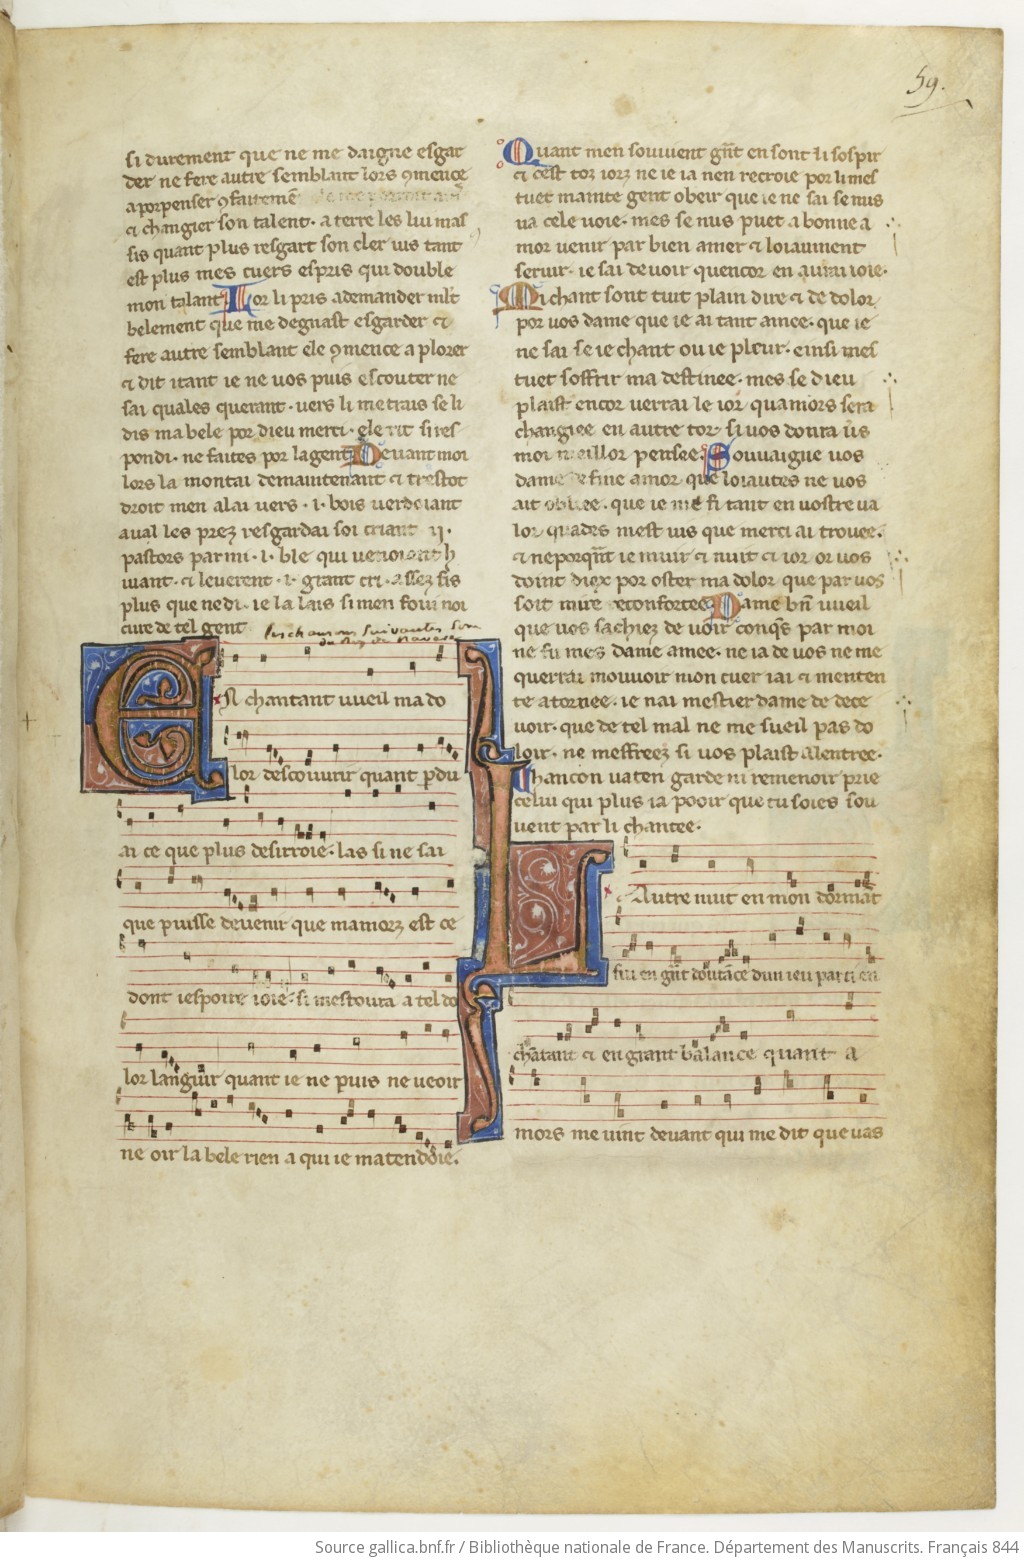 59.
si durement que ne me daigne esgar
der ne fere autre semblant lors ꝯmence
a porpenser ꝯfaitemẽ
⁊ changier son talent. a terre les lui mas
sis quant plus resgart son cler uis tant
est plus mes cuers espris qui double
mon talant Lor li pris a demander ml̃t
belement que me degnast esgarder ⁊
fere autre semblant ele ꝯmence a plorer
⁊ dit itant ie ne uos puis escouter ne
sai quales querant. uers li me trais se li
dis ma bele por dieu merci. ele rit si res
pondi. ne faites por la gent Deuant moi
lors la montai demaintenant ⁊ trestot
droit men alai uers .i. bois uerdoiant
aual les prez resgardai soi criant .ij.
pastors parmi .i. ble qui uenoient h
uiant. ⁊ leuerent .i. grant cri. assez fis
plus que ne di. ie la lais si men foui noi
cure de tel gent
les chansons suivantes son
du Roy de Navarre
En chantant uueil ma do
lor descouurir quant ꝑdu
ai ce que plus desirroie. las si ne sai
que puisse deuenir que mamorz est ce
dont iespoire ioie. si mestoura a tel do
lor languir quant ie ne puis ne ueoir
ne oir la bele rien a qui ie matendoie.
Quant men souuient gñt en sont li sospir
⁊ cest toz iorz ne ie ia nen recroie por li mes
tuet mainte gent obeir que ie ne sai se nus
ua cele uoie. mes se nus puet a bonne a
mor uenir par bien amer ⁊ loiaument
seruir. ie sai deuoir quencor en aurai ioie.
Mi chant sont tuit plain dire ⁊ de dolor
por uos dame que ie ai tant amee. que ie
ne sai se ie chant ou ie pleur. einsi mes
tuet soffrir ma destinee. mes se dieu
plaist encor uerrai le ior quamors sera
changiee en autre tor. si uos donra ũs
moi meillor pensee. Souuaigne uos
dame de fine amor que loiautes ne uos
ait obliee. que ie me fi tant en uostre ua
lor quades mest uis que merci ai trouee.
⁊ neporqñt ie muir ⁊ nuit ⁊ ior or uos
doint diex por oster ma dolor que par uos
soit mire reconfortee Dame bñ uueil
que uos sachiez de uoir conqs par moi
ne fu mes dame amee. ne ia de uos ne me
querrai mouuoir mon cuer iai ⁊ menten
te atornee. ie nai mestier dame de dece
uoir. que de tel mal ne me sueil pas do
loir. ne meffreez si uos plaist alentree.
Chancon ua ten garde ni remenoir prie
celui qui plus ia pooir que tu soies sou
uent par li chantee.
LAutre nuit en mon dormãt
fui en gñt doutãce dun ieu parti en
chãtant ⁊ en grant balance quant a
mors me uint deuant qui me dit que uas
Source gallica.bnf.fr / Bibliothèque nationale de France. Département des Manuscrits. Français 844